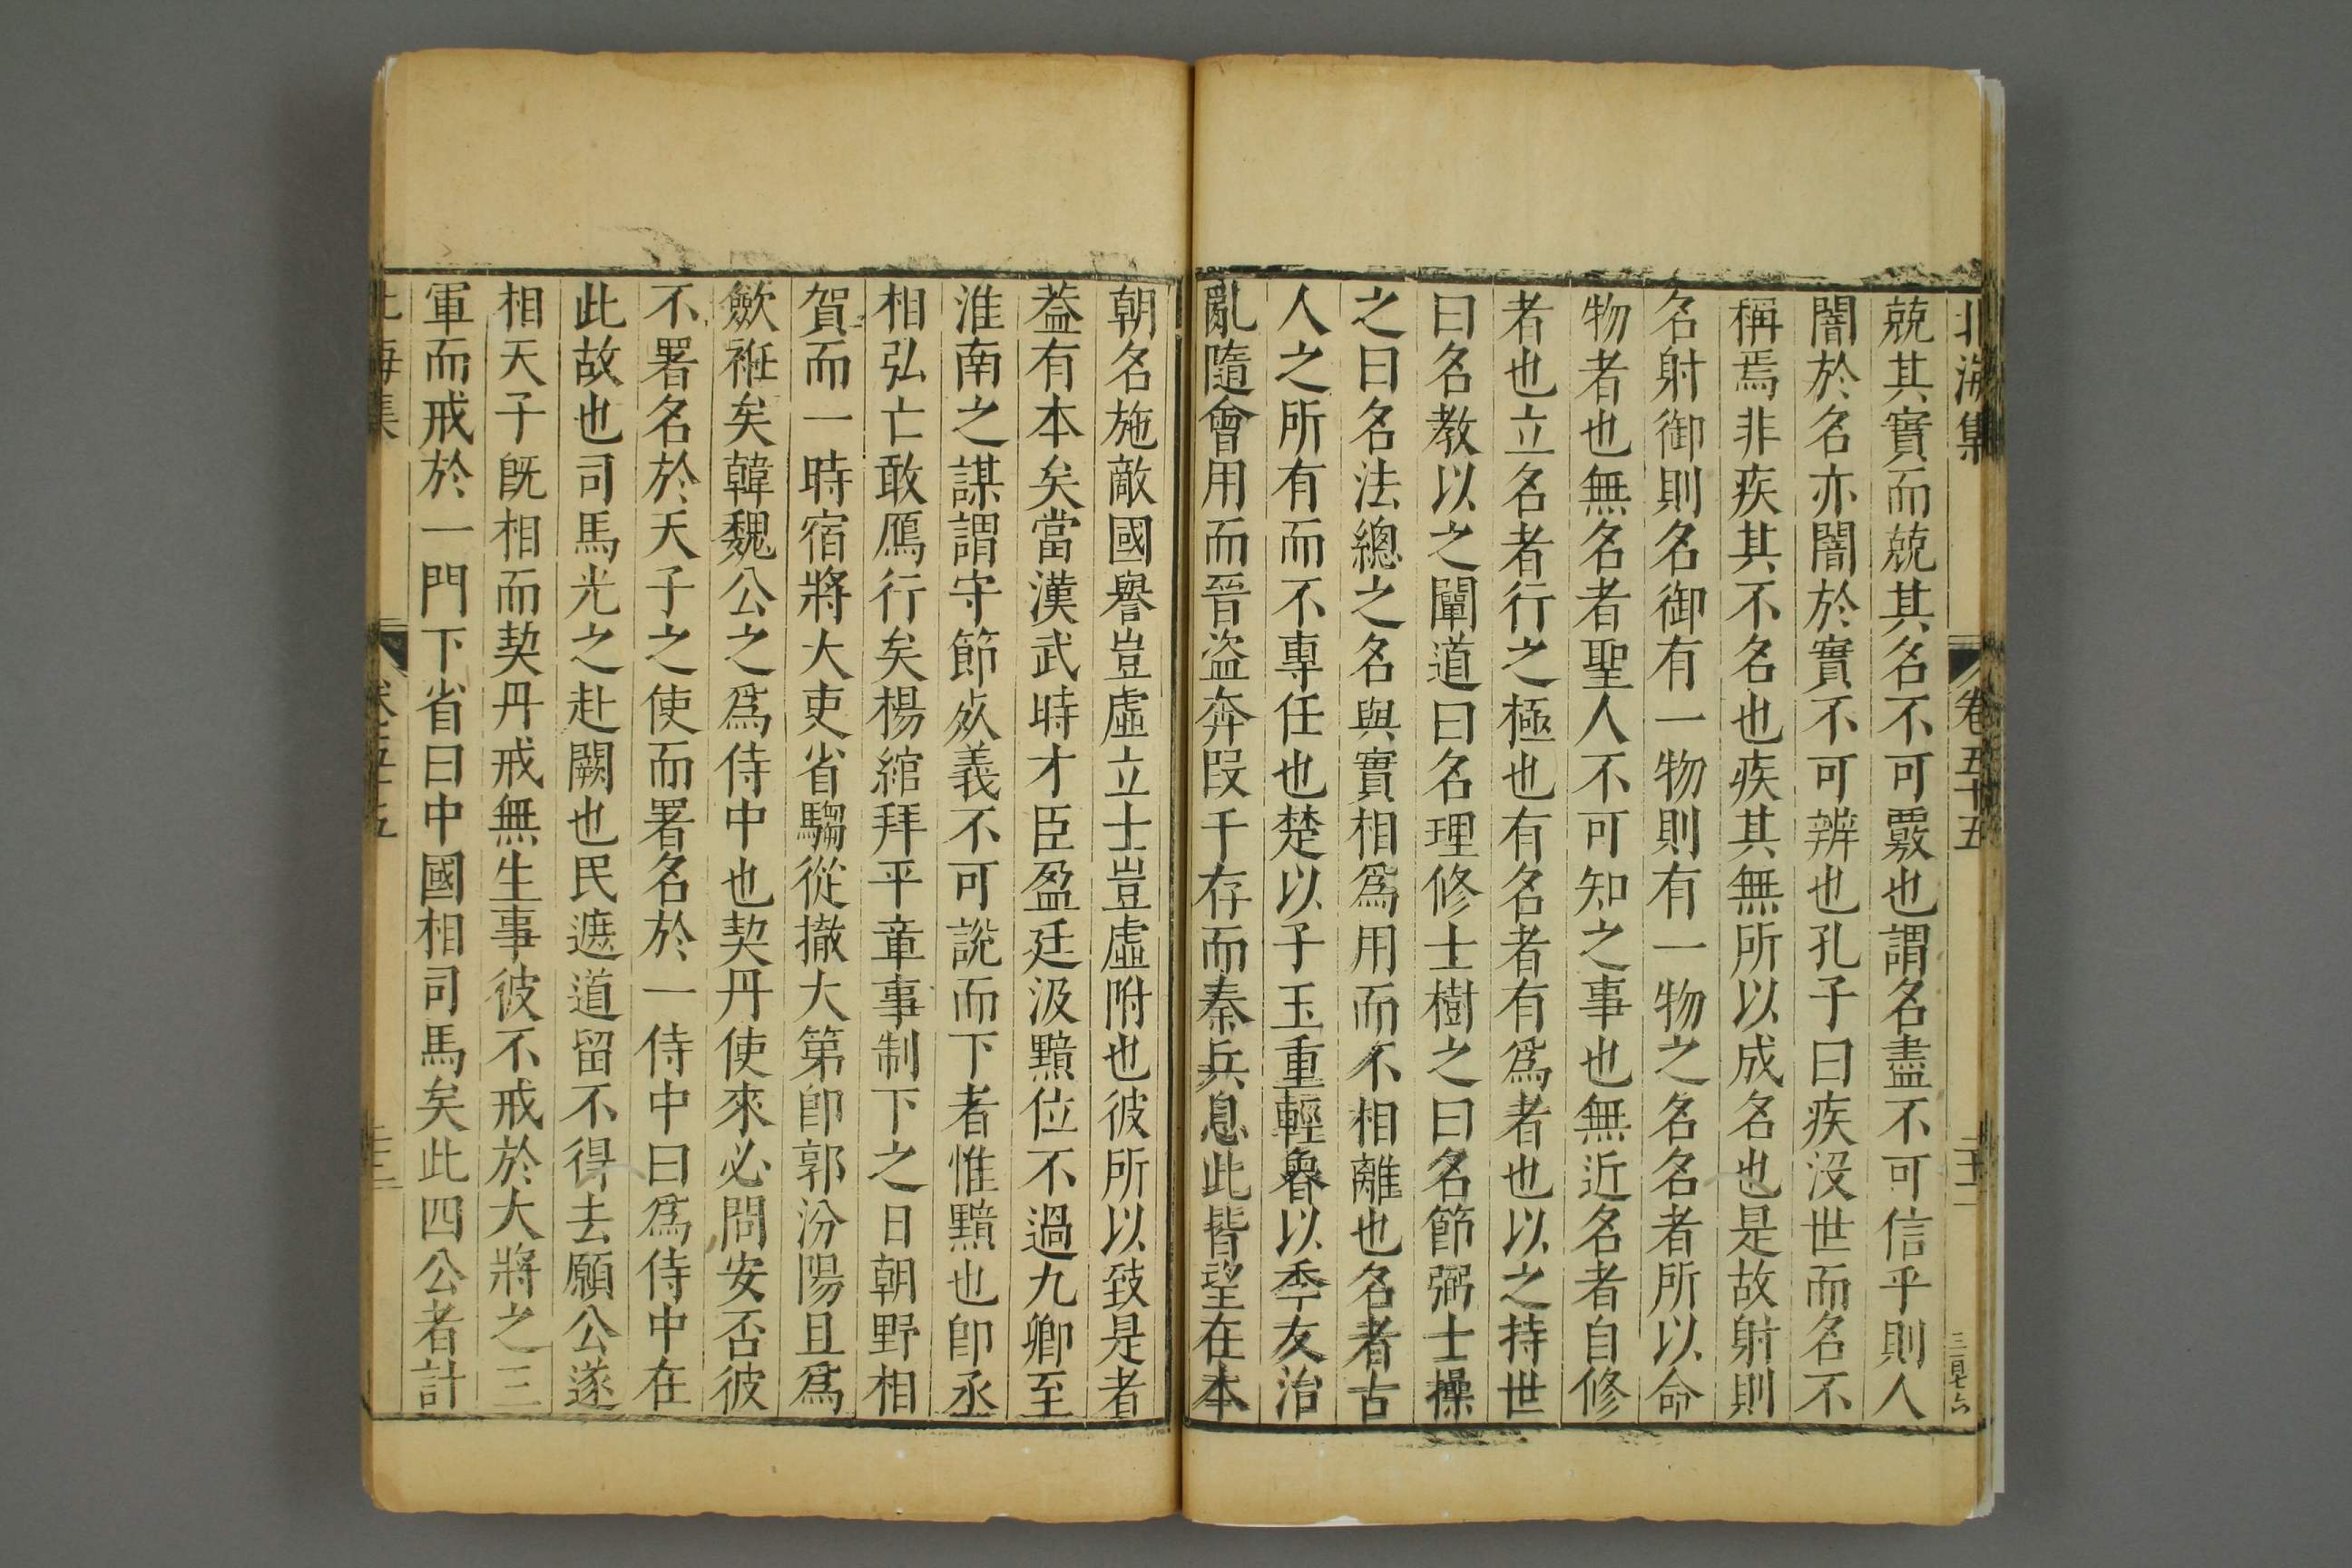 北海集 卷五十五 三百七六
兢其實而兢其名不可覈也謂名盡不可信乎則人
闇於名亦闇於實不可辨也孔子曰疾沒世而名不
稱焉非疾其不名也疾其無所以成名也是故射則
名射御則名御有一物則有一物之名名者所以命
物者也無名者聖人不可知之事也無近名者自修
者也立名者行之極也有名者有爲者也以之持世
曰名教以之闡道曰名理修士樹之曰名節弼士操
之曰名法總之名與實相爲用而不相離也名者古
人之所有而不專任也楚以子玉重輕魯以季友治
亂隨會用而晉盜奔段干存而秦兵息此皆望在本
朝名施敵國譽豈虛立士豈虛附也彼所以致是者
葢有本矣當漢武時才臣盈廷汲黯位不過九卿至
淮南之謀謂守節死義不可說而下者惟黯也卽丞
相弘亡敢鴈行矣楊綰拜平章事制下之日朝野相
賀而一時宿將大吏省騶從撤大第卽郭汾陽且爲
歛袵矣韓魏公之爲侍中也契丹使來必問安否彼
不署名於天子之使而署名於一侍中曰爲侍中在
此故也司馬光之赴闕也民遮道留不得去願公遂
相天子旣相而契丹戒無生事彼不戒於大將之三
軍而戒於一門下省曰中國相司馬矣此四公者計
海集